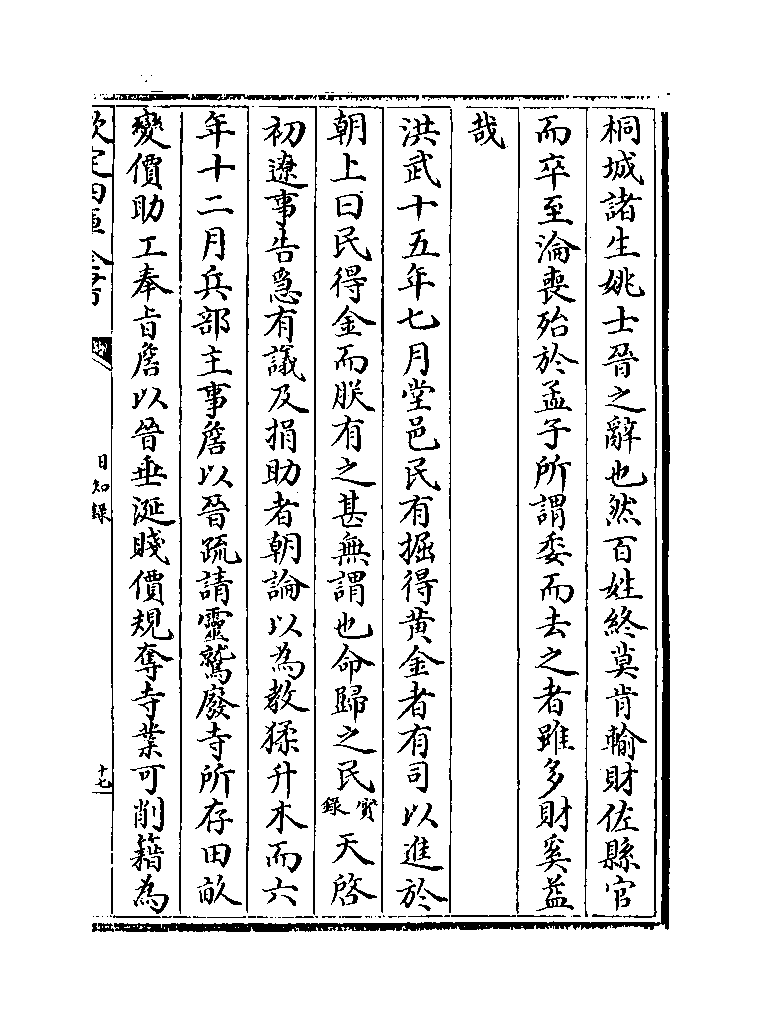 桐城諸生姚士晉之辭也然百姓終莫肯輸財佐縣官
而卒至淪喪殆於孟子所謂委而去之者雖多財奚益
哉
洪武十五年七月堂邑民有掘得黄金者有司以進於
朝上曰民得金而朕有之甚無謂也命歸之民實録天啓
初遼事告急有議及捐助者朝論以為教猱升木而六
年十二月兵部主事詹以晉疏請靈鷲廢寺所存田畝
變價助工奉旨詹以晉垂涎賤價規奪寺業可削籍為
日知録
十七